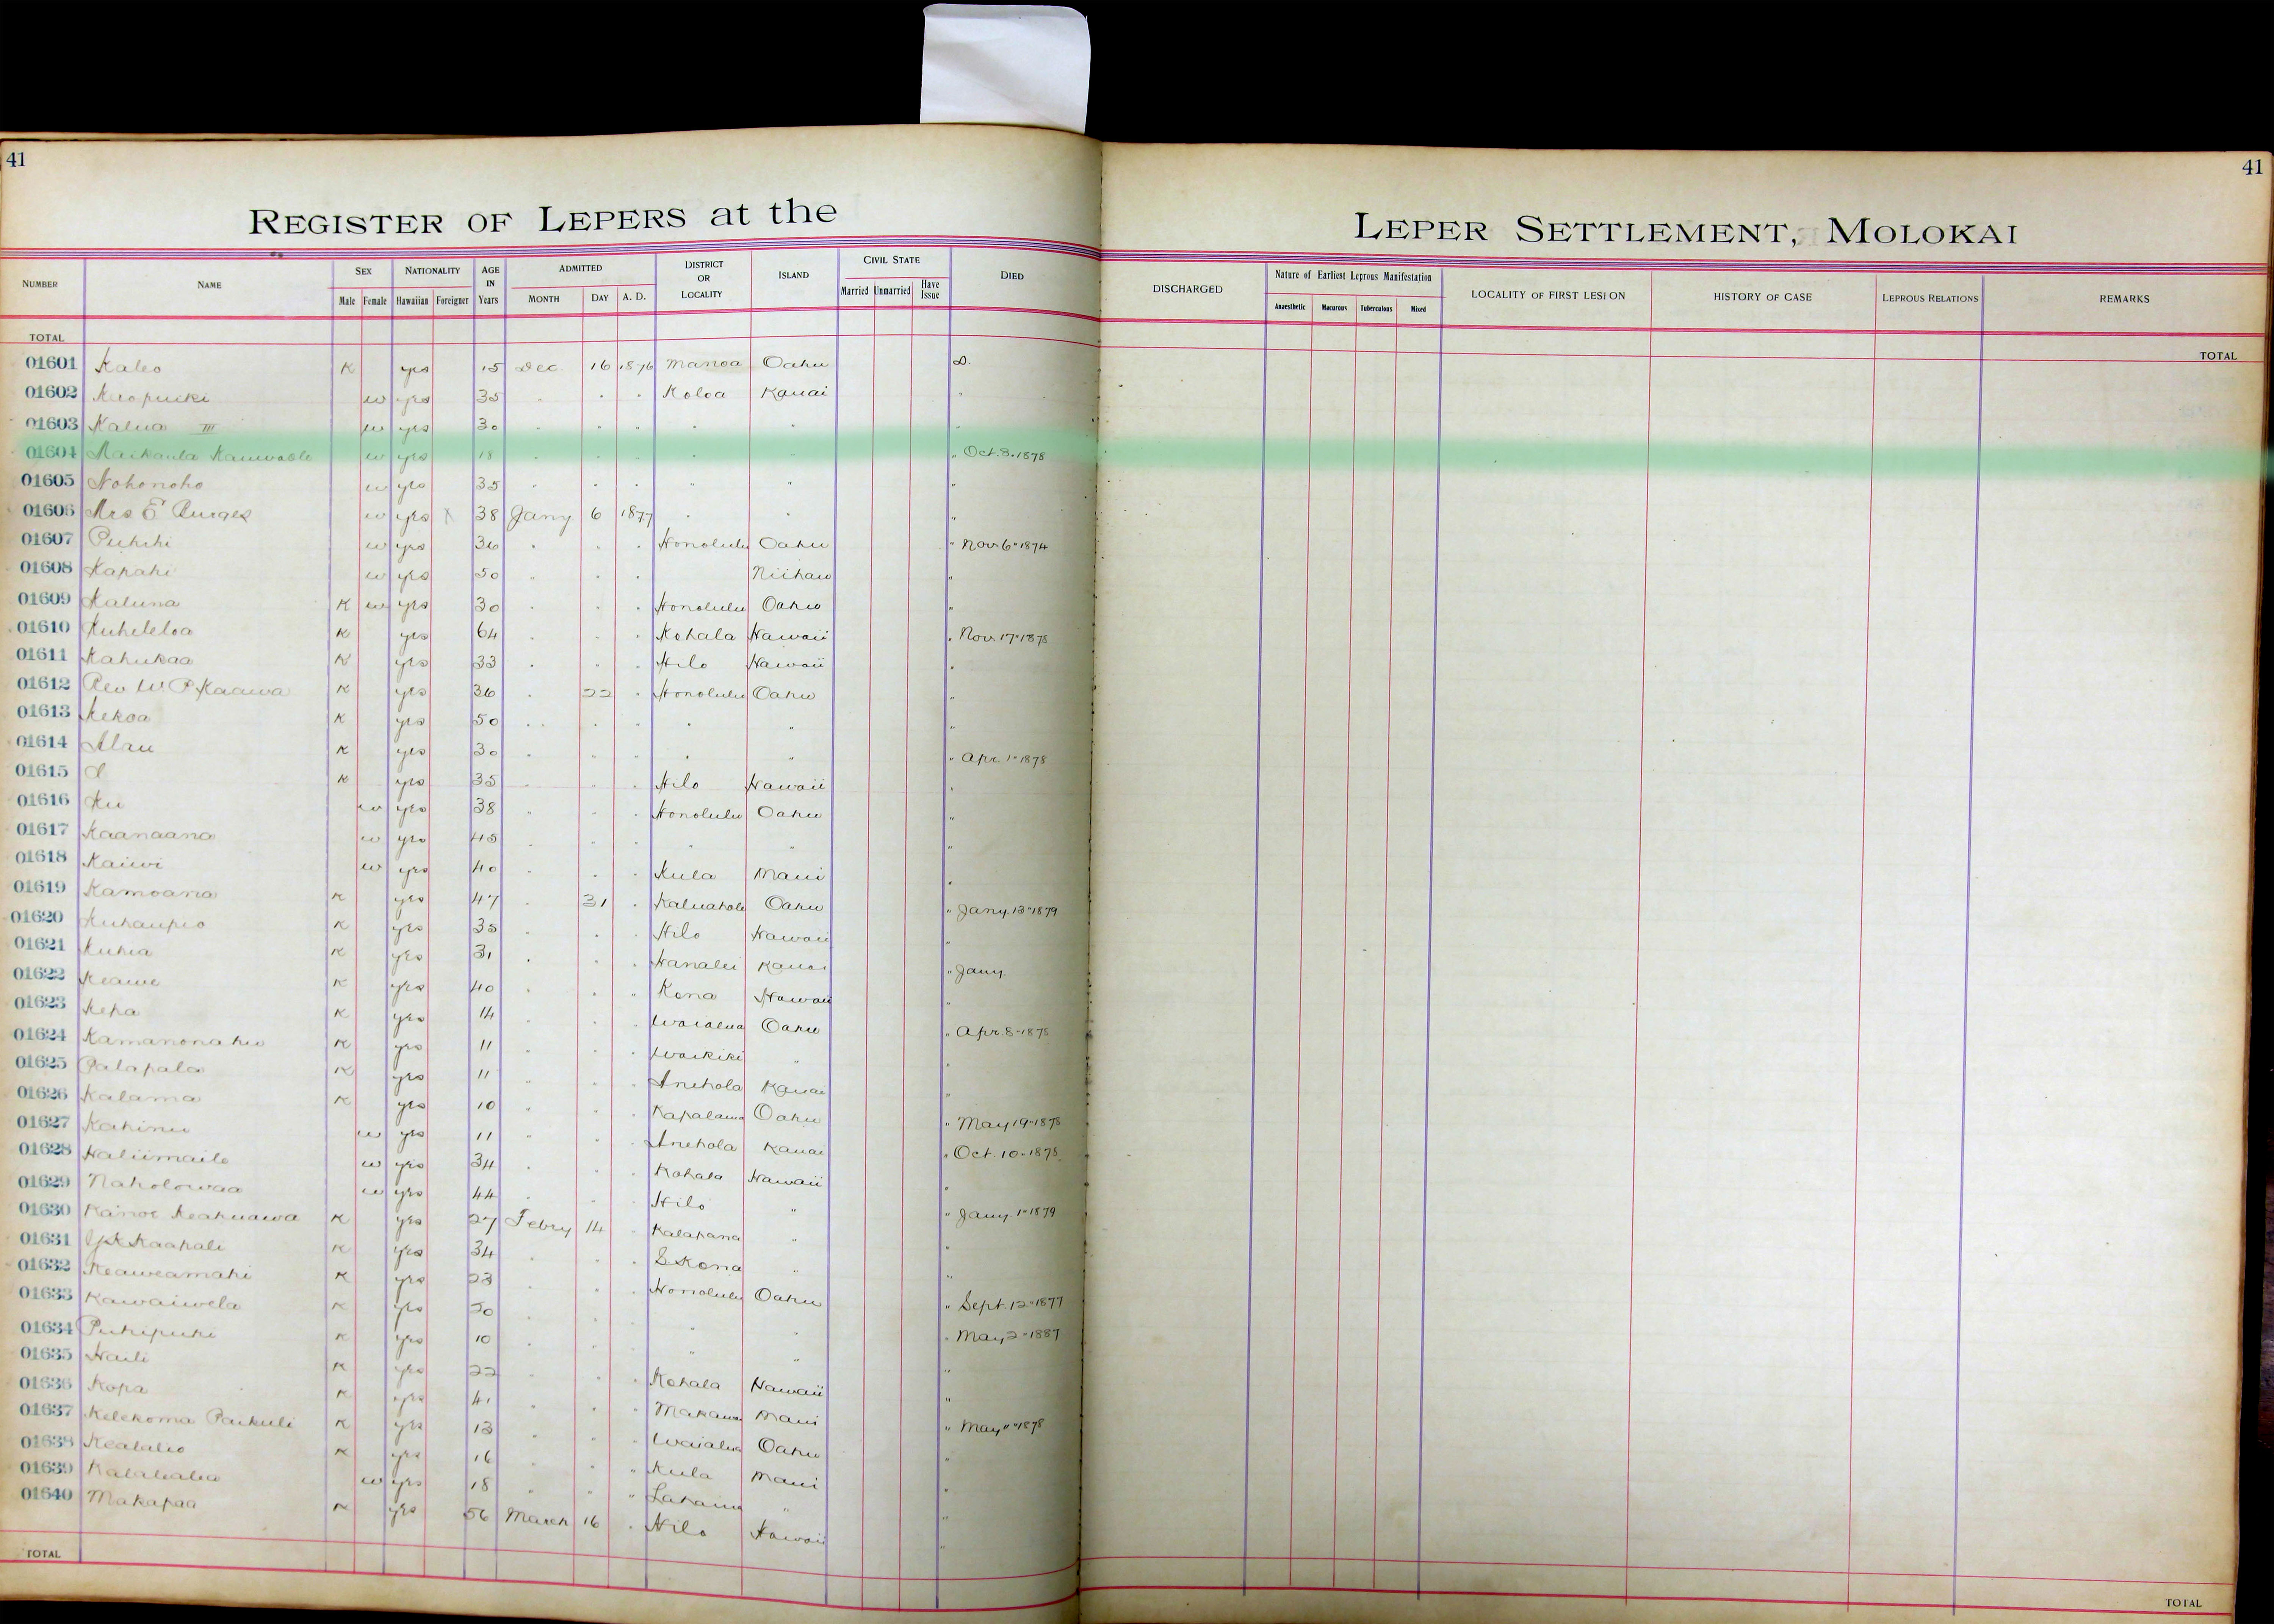 41
41
REGISTER OF LEPERS at the
LEPER SETTLEMENT, MOLOKAI
NUMBER NAME SEX NATIONALITY AGE IN Years ADMITTED DISTRICT OR LOCALITY ISLAND CIVIL STATE DIED DISCHARGED Nature of Earliest Leprous Manifestation LOCALITY OF FIRST LESION HISTORY OF CASE LEPROUS RELATIONS REMARKS
Male Female Hawaiian Foreigner MONTH DAY A. D. Married Unmarried Have Issue Anaesthetic Macurous Tuberculous Mixed
TOTAL TOTAL
01601 Kaleo K yes 15 Dec. 16 1876 Manoa Oahu D.
01602 w yes 35 " " " Koloa Kauai "
01603 Kalua III w yes 30 " " " " " "
01604 w yes 18 " " " " " " Oct. 8. 1878
01605 Nohonoho w yes 35 " " " " " "
01606 Mrs E Burges w yes X 38 Jany 6 1877 " " "
01607 Puhihi w yes 36 " " " Honolulu Oahu " Nov. 6" 1874
01608 Kapahi w yes 50 " " " Niihau "
01609 Kaluna K w yes 30 " " " Honolulu Oahu "
01610 Kuheleloa K yes 64 " " " Kohala Hawaii " Nov. 17" 1878
01611 Kahukaa K yes 33 " " " Hilo Hawaii "
01612 Rev W. P. Kaawa K yes 36 " 22 " Honolulu Oahu "
01613 Kekoa K yes 50 " " " " " "
01614 Alau K yes 30 " " " " " " Apr. 1" 1878
01615 K yes 35 " " " Hilo Hawaii "
01616 Ku w yes 38 " " " Honolulu Oahu "
01617 Kaanaana w yes 45 " " " " " "
01618 Kaiwi w yes 40 " " " Kula Maui "
01619 Kamoana K yes 47 " 31 " Kaluahole Oahu " Jany. 13" 1879
01620 Kuhaupio K yes 35 " " " Hilo Hawaii "
01621 Kuhia K yes 31 " " " Hanalei Kauai " Jany.
01622 Keawe K yes 40 " " " Kona Hawaii "
01623 Kepa K yes 14 " " " Waialua Oahu " Apr. 8" 1878
01624 Kamanonahu K yes 11 " " " Waikiki " "
01625 Palapala K yes 11 " " " Anehola Kauai "
01626 Kalama K yes 10 " " " Kapalama Oahu " May 19" 1878
01627 Kahinu w yes 11 " " " Anehola Kauai " Oct. 10" 1878
01628 Haliimaile w yes 34 " " " Kohala Hawaii "
01629 Naholowaa w yes 44 " " " Hilo " " Jany. 1" 1879
01630 Kanoe Keakuawa K yes 27 Febry 14 " Kalapana " "
01631 Kaahale K yes 34 " " " S Kona " "
01632 Keaweamahi K yes 23 " " " Honolulu Oahu " Sept. 12" 1877
01633 Kawaiwela K yes 20 " " " " " " May 2" 1887
01634 Puhipuhi K yes 10 " " " " " "
01635 Haili K yes 22 " " " Kohala Hawaii "
01636 Kopa K yes 41 " " " Makawao Maui " May " 1878
01637 Kelekoma Paikuli K yes 13 " " " Waialua Oahu "
01638 Kealalio K yes 16 " " " Kula Maui "
01639 w yes 18 " " " Lahaina " "
01640 Makapaa K yes 56 March 16 " Hilo Hawaii "
TOTAL TOTAL